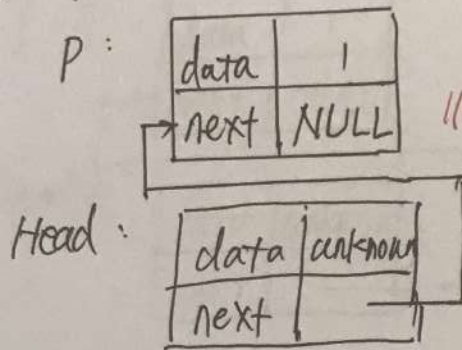 P :
data 1
next NULL
Head :
data unknown
next